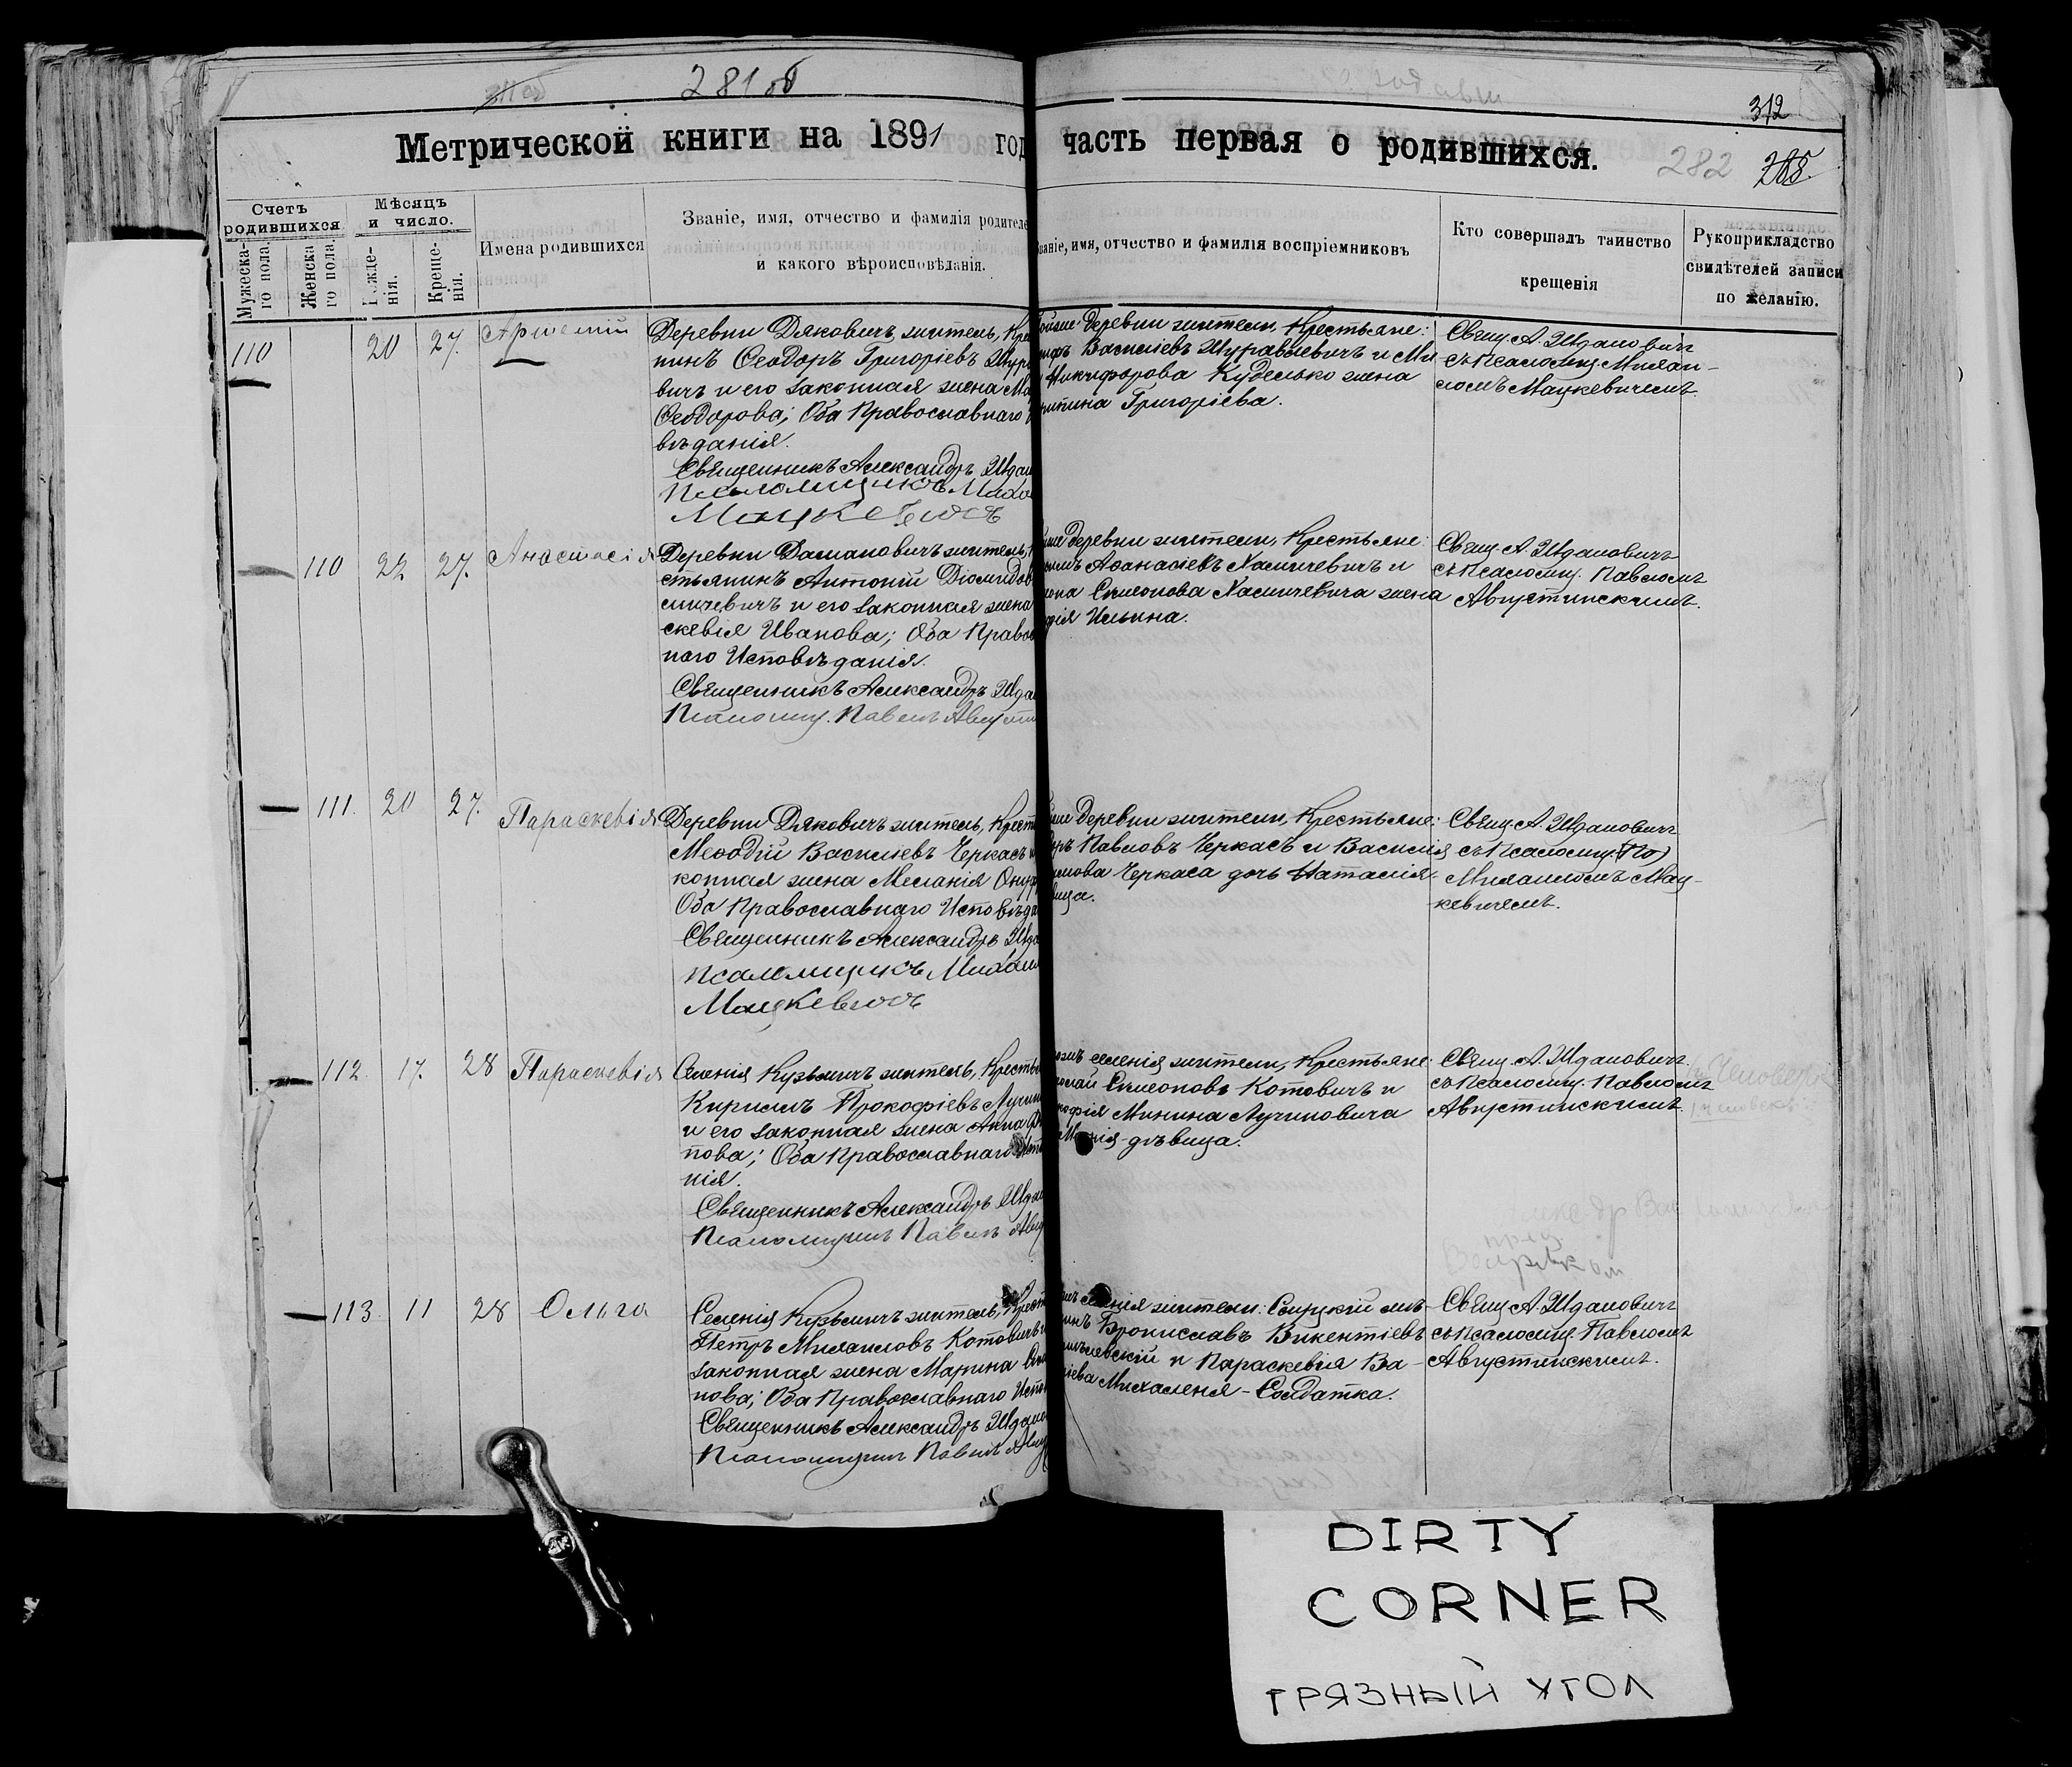 281 об
312
Метрической книги на 1891 год часть первая о родившихся.
282
Счетъ родившихся
Мужеска-
го пола.
Женска
го пола.
Мѣсяцъ и число.
Рожде-
нія.
Креще-
нія.
Имена родившихся
Званіе, имя, отчество и фамилія родителе
и какого вѣроисповѣданія.
Званіе, имя, отчество и фамилія воспріемниковъ
Кто совершалъ таинство
крещенія
Рукоприкладство
свидѣтелей записи
по желанію.
110
20
27.
Артемій
Деревни Дяковичъ житель, Кре
нинъ Ѳеодоръ Григоріевъ
вичъ и его законная жена Ма
Ѳеодорова; Оба Православнаго
вѣданія.
Священникъ Александръ Ждан
Псаломщикъ Миха
Мацкевичъ
тойже деревни жители, Крестьяне:
Василіевъ Журавлевичъ и Ми
Никифорова Куделько жена
Григоріева.
Свящ. А. Ждановичъ
съ Псаломщ. Михаи-
ломъ Мацкевичемъ.
110
22
27.
Анастасія
Деревни Домановичъ житель,
стьянинъ Антоній Діомидов
мичевичъ и его законная жена
скевія Иванова; Оба Правос
наго Исповѣданія.
Священникъ Александръ Ждан
Псаломщ. Павелъ Августи
же деревни жители, Крестьяне:
Аѳанасіевъ Хамичевичъ и
Симеонова Хамичевича жена
Ильина.
Свящ. А. Ждановичъ
съ Псаломщ. Павломъ
Августинскимъ.
111.
20
27.
Параскевія
Деревни Дяковичъ житель, Крест
Меѳодій Василіевъ Черкасъ
конная жена Меланія Онуф
Оба Православнаго Исповѣда
Священникъ Александръ Жда
Псаломщикъ Михаил
Мацкевичъ
же деревни жители, Крестьяне:
Павловъ Черкасъ и Василія
Черкаса дочь Наталія
вица.
Свящ. А. Ждановичъ
съ Псаломщ. (По)
Михаиломъ Мац-
кевичемъ.
112.
17.
28
Параскевія
Селенія Кузьмичъ житель, Крестья
Кириллъ Прокофіевъ Лучин
и его законная жена Анна Фи
пова; Оба Православнаго Испо
нія.
Священникъ Александръ Ждан
Псаломщикъ Павелъ Авгу
селенія жители, Крестьяне:
Симеоновъ Котовичъ и
Минина Лучиновича
дѣвица.
Свящ. А. Ждановичъ
съ Псаломщ. Павломъ
Августинскимъ.
113.
11
28
Ольга
Селенія Кузьмичъ житель, Крест
Петръ Михаиловъ Котовичъ
законная жена Марина
нова; Оба Православнаго Испо
Священникъ Александръ Ждано
Псаломщикъ Павелъ Авгу
селенія жители: Слуцкій мѣ-
нинъ Брониславъ Викентіевъ
и Параскевія Ва-
Михаленя - Солдатка.
Свящ. А. Ждановичъ
съ Псаломщ. Павломъ
Августинскимъ.
DIRTY
CORNER
ГРЯЗНЫЙ УГОЛ